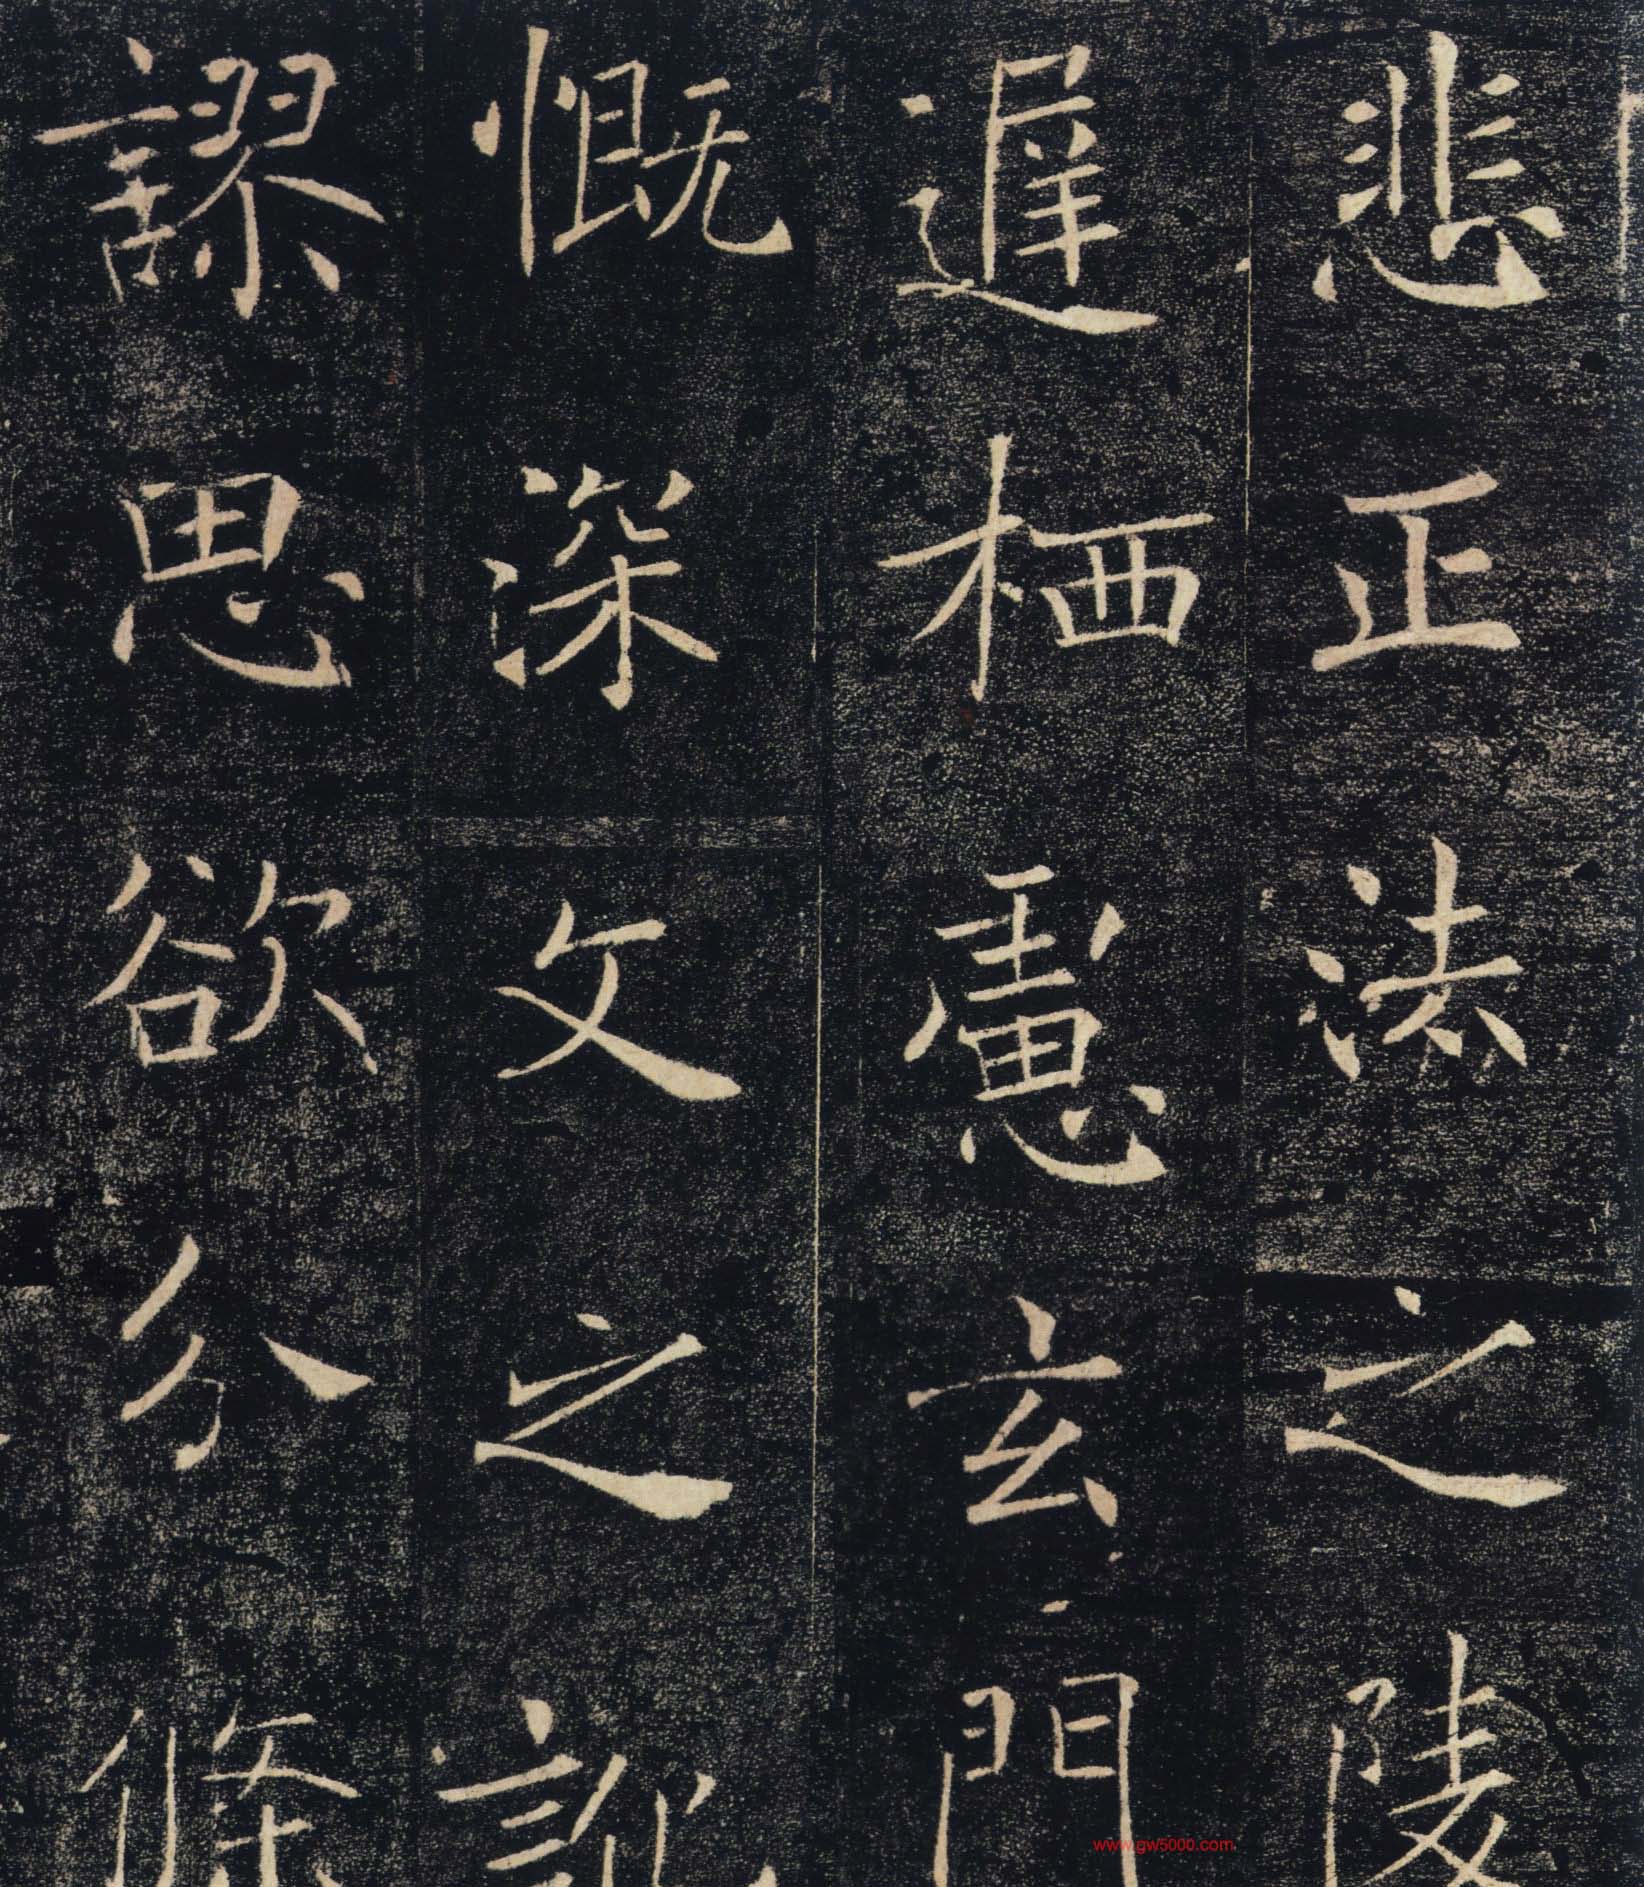 悲正法之陵
遅栖慮玄門
慨深文之訛
謬思欲分條
www.gw5000.com